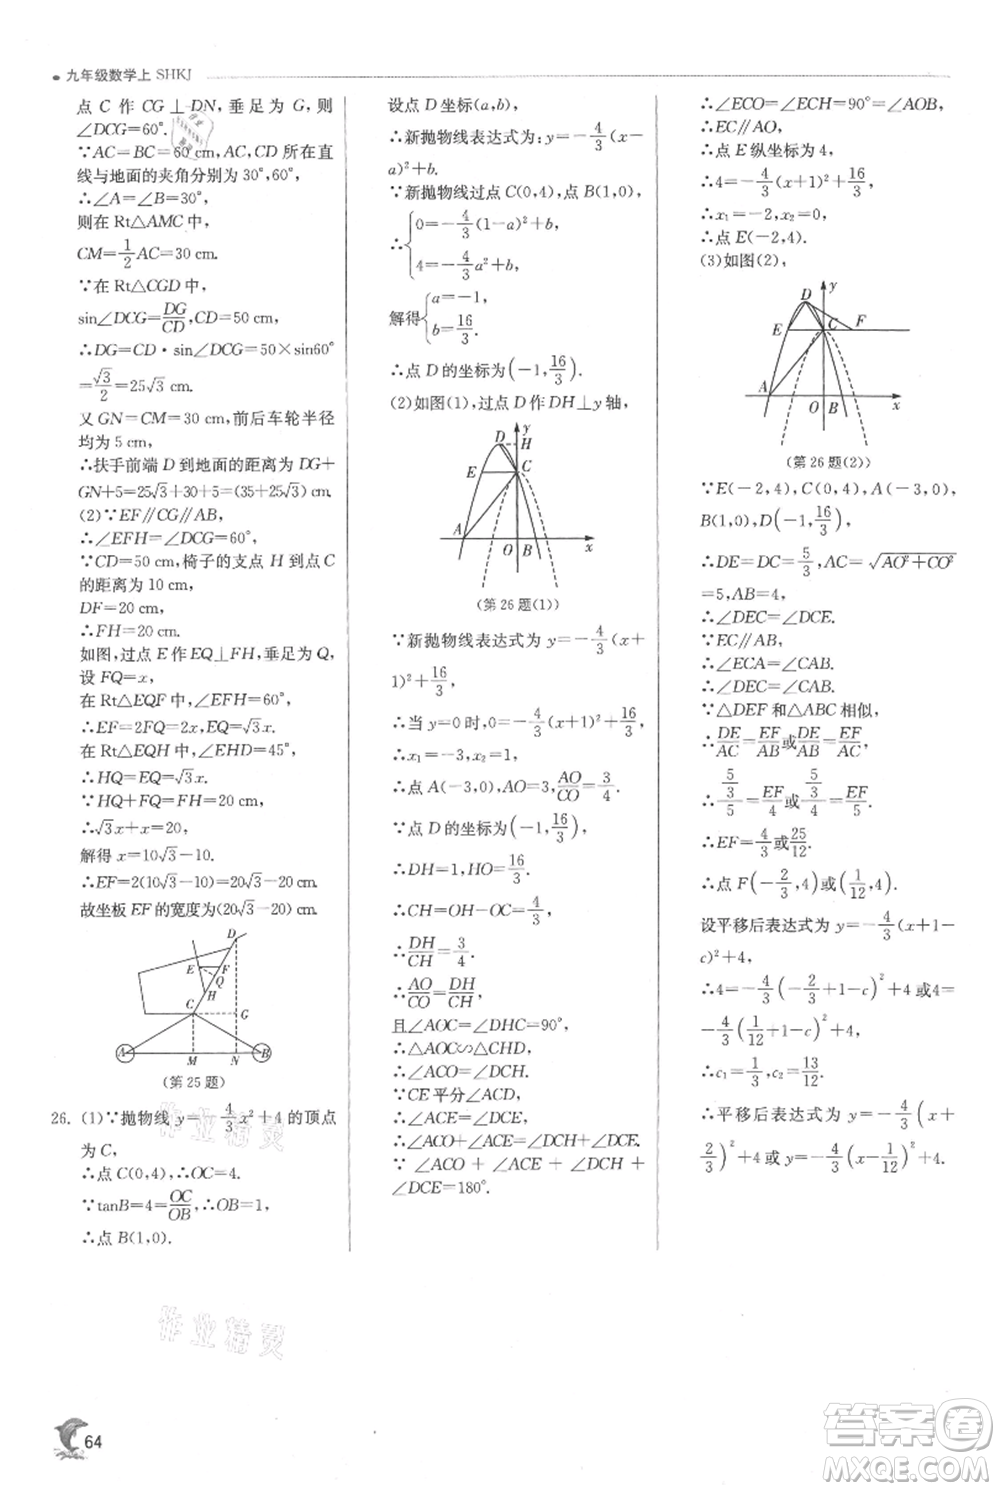 九年级数学上 SHKJ
点 C 作 CG⊥DN,垂足为 G,则
∠DCG=60°.
∵AC=BC=60 cm,AC,CD 所在直
线与地面的夹角分别为30°,60°,
∴∠A=∠B=30°,
则在 Rt△AMC 中,
CM=1/2AC=30 cm.
∵在 Rt△CGD 中,
sin∠DCG=DG/CD,CD=50 cm,
∴DG=CD·sin∠DCG=50×sin60°
=√3/2=25√3 cm.
又 GN=CM=30 cm,前后车轮半径
均为 5 cm,
∴扶手前端 D 到地面的距离为 DG+
GN+5=25√3+30+5=25√3+35(cm).
(2)∵EF∥CG∥AB,
∴∠EFH=∠DCG=60°,
∵CD=50 cm,椅子的支点 H 到点 C
的距离为 10 cm,
DF=20 cm,
∴FH=20 cm.
如图,过点 E 作 EQ⊥FH,垂足为 Q,
设 FQ=x,
在 Rt△EQF 中,∠EFH=60°,
∴EF=2FQ=2x,EQ=√3x.
在 Rt△EQH 中,∠EHD=45°,
∴HQ=EQ=√3x.
∵HQ+FQ=FH=20 cm,
∴√3x+x=20,
解得 x=10√3-10.
∴EF=2(10√3-10)=20√3-20.
故坐板 EF 的宽度为(20√3-20)cm.
D
E F
Q
H
C G
A M N B
(第 25 题)
26. (1)∵抛物线 y=-4/3x²+4 的顶点
为 C,
∴点 C(0,4),∴OC=4.
∵tanB=4=OC/OB,∴OB=1,
∴点 B(1,0).
设点 D 坐标(a,b),
∴新抛物线表达式为:y=-4/3(x-
a)²+b,
∵新抛物线过点 C(0,4),点 B(1,0),
∴{0=-4/3(1-a)²+b,
4=-4/3a²+b,
解得{a=-1,
b=16/3.
∴点 D 的坐标为(-1,16/3).
(2)如图(1),过点 D 作 DH⊥y 轴,
y
D H
E C
A O B x
(第 26 题(1))
∵新抛物线表达式为 y=-4/3(x+
1)²+16/3,
∴当 y=0时,0=-4/3(x+1)²+16/3,
∴x₁=-3,x₂=1,
∴点 A(-3,0),AO=3,AO/CO=3/4.
∵点 D 的坐标为(-1,16/3),
∴DH=1,HO=16/3,
∴CH=OH-OC=4/3,
∴DH/CH=3/4,
∴AO/CO=DH/CH,
且∠AOC=∠DHC=90°,
∴△AOC∽△CHD,
∴∠ACO=∠DCH.
∵CE 平分∠ACD,
∴∠ACE=∠DCE,
∴∠ACO+∠ACE=∠DCH+∠DCE.
∵∠ACO+∠ACE+∠DCH+
∠DCE=180°.
∴∠ECO=∠ECH=90°=∠AOB,
∴EC∥AO,
∴点 E 纵坐标为 4,
∴4=-4/3(x+1)²+16/3,
∴x₁=-2,x₂=0,
∴点 E(-2,4).
(3)如图(2),
y
D
E C F
A O B x
(第 26 题(2))
∵E(-2,4),C(0,4),A(-3,0),
B(1,0),D(-1,16/3),
∴DE=DC=5/3,AC=√AO²+CO²
=5,AB=4,
∴∠DEC=∠DCE.
∵EC∥AB,
∴∠ECA=∠CAB.
∴∠DEC=∠CAB.
∵△DEF 和△ABC 相似,
∴DE/AC=EF/AB或DE/AB=EF/AC.
∴5/3/5=EF/4或5/3/4=EF/5.
∴EF=4/3或25/12.
∴点 F(-2/3,4)或(1/12,4).
设平移后表达式为 y=-4/3(x+1-
c)²+4,
∴4=-4/3(-2/3+1-c)²+4 或4=
-4/3(1/12+1-c)²+4,
∴c₁=1/3,c₂=13/12.
∴平移后表达式为 y=-4/3(x+
2/3)²+4或 y=-4/3(x-1/12)²+4.
作业精灵
作业精灵
64
答案圈
MXQE.COM